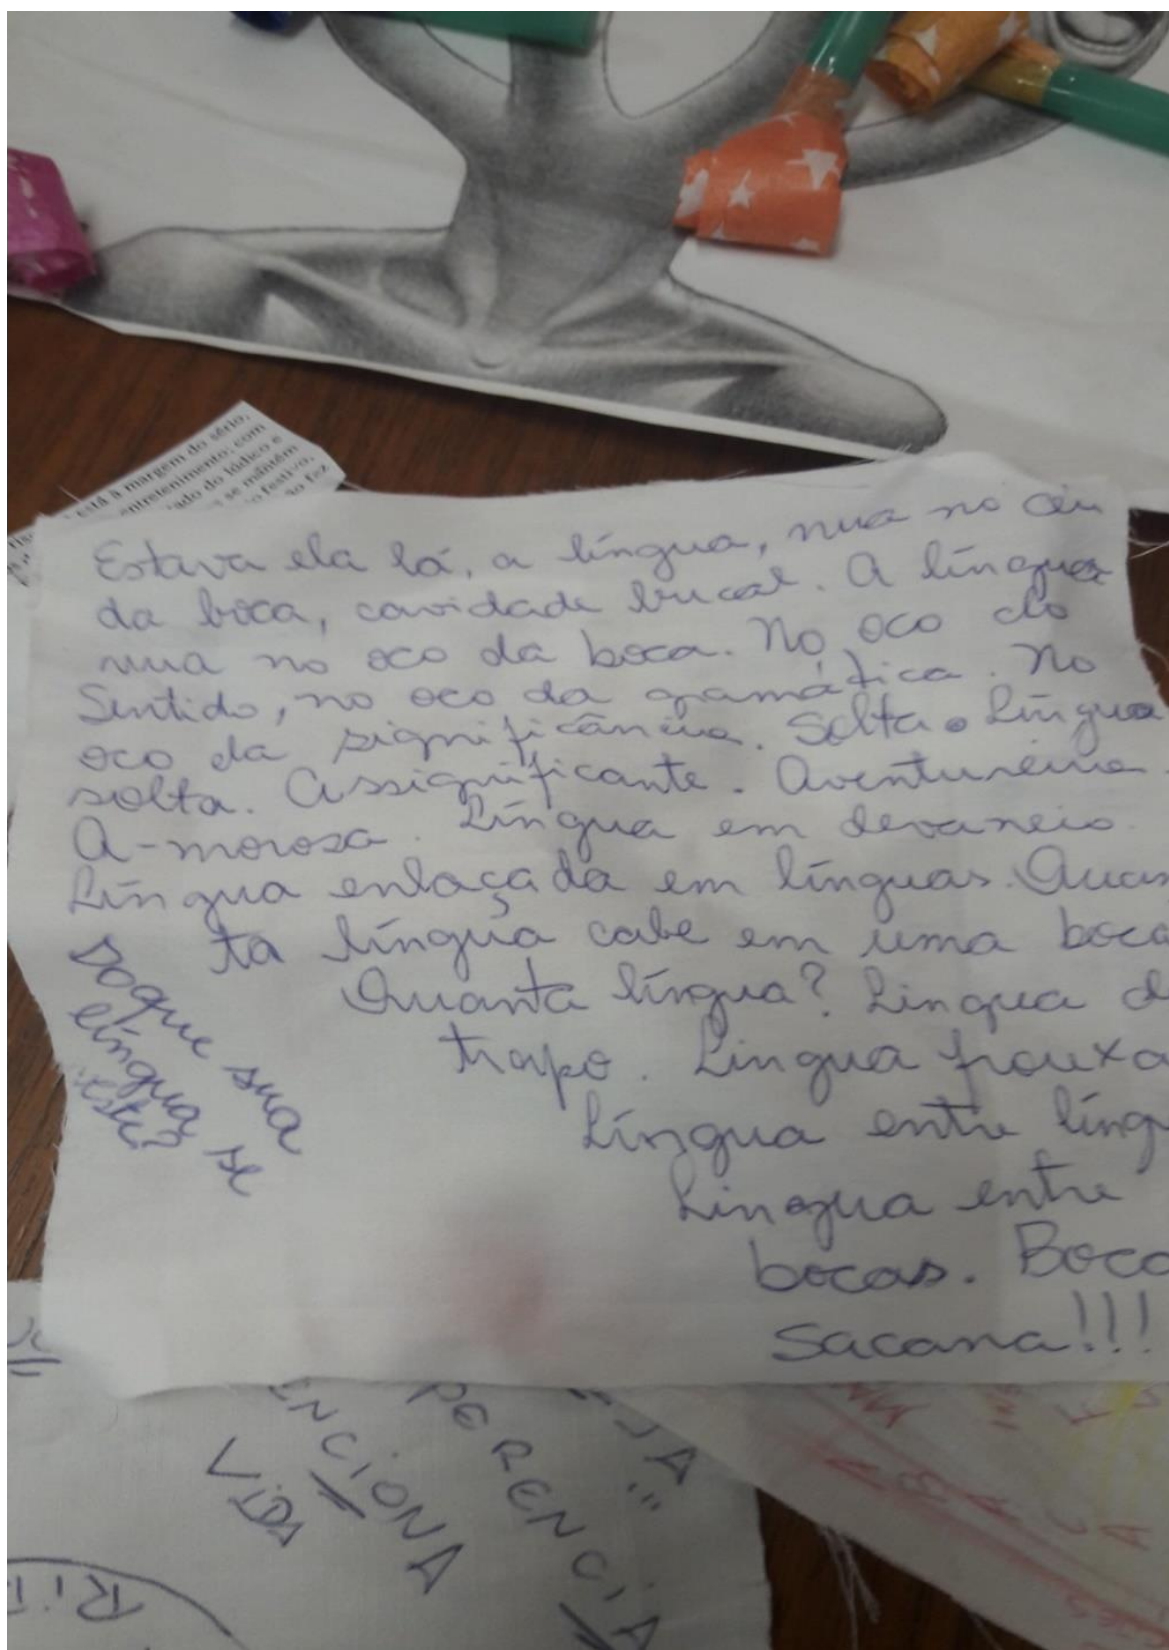 está à margem do sério,
entretenimento; com
ado do lúdico e
se mantém
o festivo,
ão fez
Estava ela lá, a língua, nua no céu
da boca, cavidade bucal. A língua
nua no oco da boca. No oco do
Sentido, no oco da gramática. No
oco da significância. Solta. Língua
solta. Assignificante. Aventureira.
A-morosa. Língua em devaneio.
Língua enlaçada em línguas. Quan
ta língua cabe em uma boca
Quanta língua? Lingua d
trapo. Lingua frouxa
Língua entre língu
Lingua entre
bocas. Boca
sacana!!!
Soque sua
língua se
ENCIONA
VIDA
PERENCIA